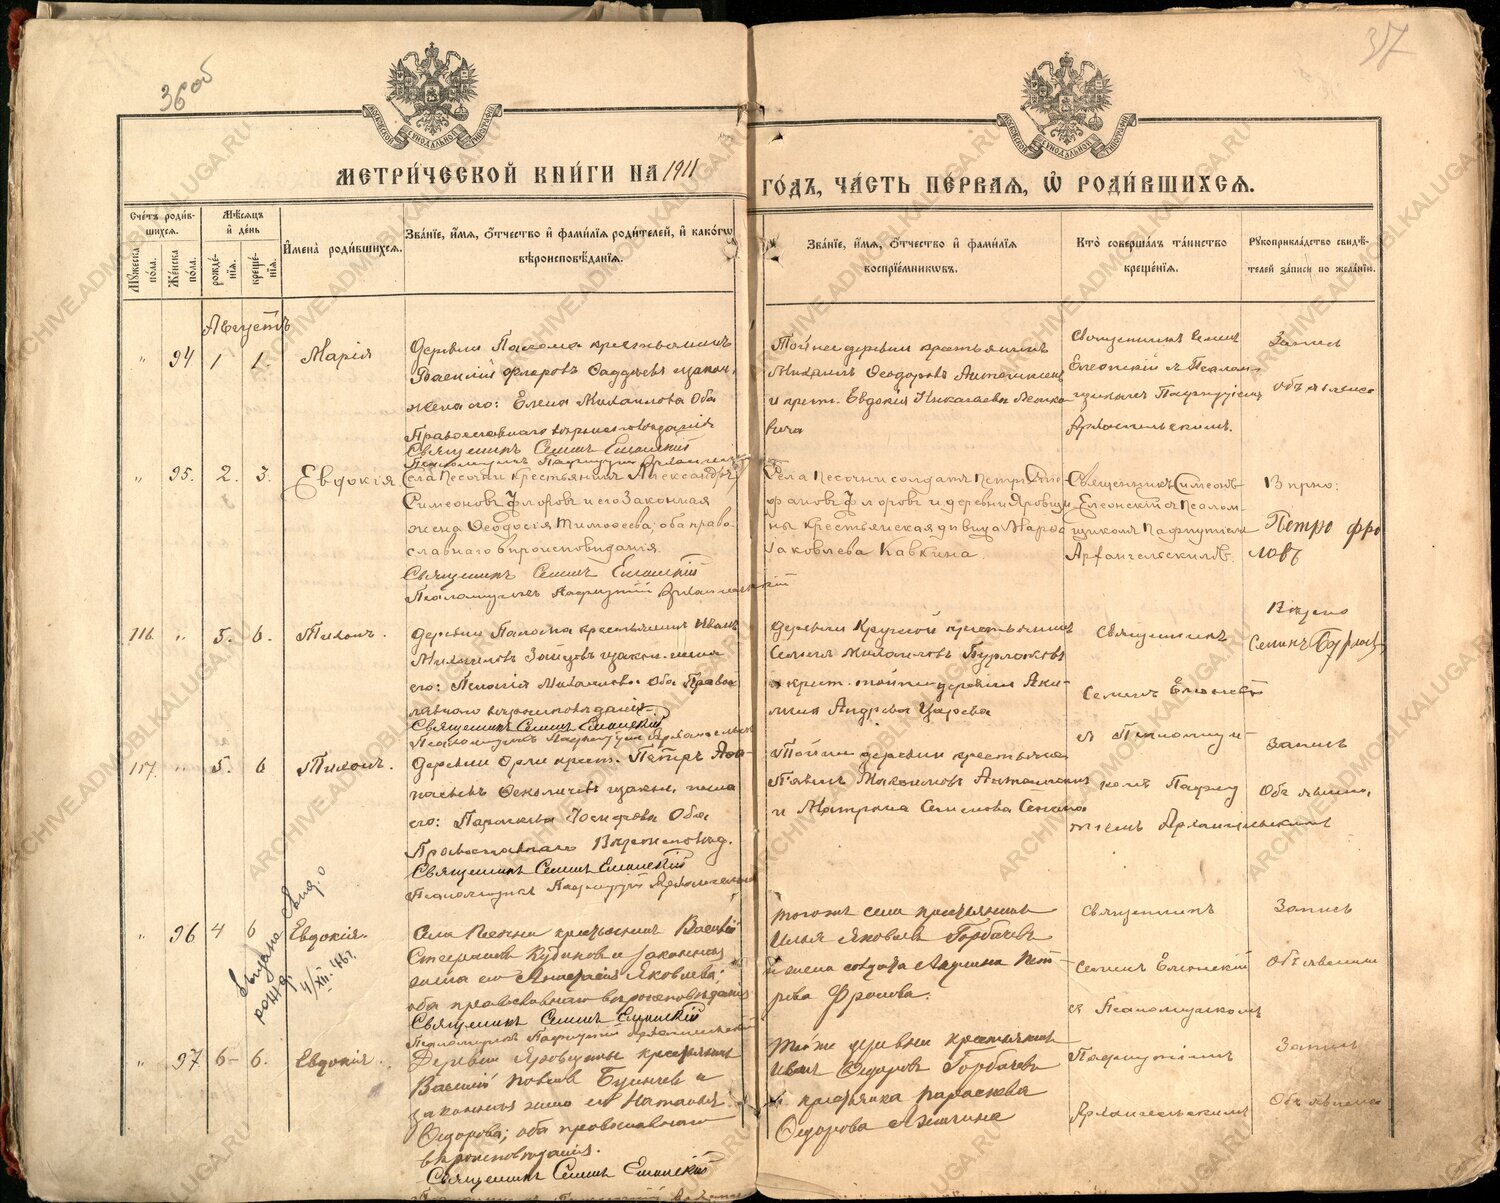 36 об
37
МОСКОВСКОЙ СѴНОДАЛЬНОЙ ТИПОГРАФІИ
МОСКОВСКОЙ СѴНОДАЛЬНОЙ ТИПОГРАФІИ
МЕТРИ́ЧЕСКОЙ КНИ́ГИ НА 1911
ГО́ДЪ, ЧА́СТЬ ПЕ́РВАЯ, Ѡ РОДИ́ВШИХСЯ.
Сче́тъ роди́в-
шихся.
Му́жеска
пола.
Же́нска
по́ла.
Мѣ́сяцъ
и҆ де́нь
рожде́-
нія.
креще́-
нія.
И҆мена̀ роди́вшихся.
Зва́ніе, и҆́мя, ѻ҆́тчество и҆ фами́лія роди́телей, и҆ како́гѡ
вѣроисповѣ́данія.
Зва́ніе, и҆́мя, ѻ҆́тчество и҆ фами́лія
воспріе́мникѡвъ.
Кто̀ соверша́лъ та́инство
креще́нія.
Рꙋкоприкла́дство свидѣ́-
телей за́писи по жела́нію.
Августъ
" 94 1 1. Марія
Деревни Палома крестьянинъ
Василій Флоровъ и закон.
жена его: Елена Михаилова Оба
Православнаго вѣроисповѣданія
Священникъ Семенъ Елеонскій
Псаломщикъ Пафнутій Архангельскій
Той же деревни крестьянинъ
Михаилъ Ѳеодоровъ
и крест. Евдокія
Священникъ Семенъ
Елеонскій съ Псалом-
щикомъ Пафнутіемъ
Архангельскимъ.
Запись
объявлена
" 95. 2. 3. Евдокія
Села Песочни крестьянинъ Александръ
Симеоновъ Флоровъ и его законная
жена Ѳеодосія Тимоѳеева, оба право-
славнаго вѣроисповѣданія.
Священникъ Семенъ Елеонскій
Псаломщикъ Пафнутій Архангельскій
Села Песочни солдатъ Петръ
Флоровъ и деревни Яровщи
ны крестьянская дѣвица Марѳа
Іаковлева Кавкина.
Священникъ Симеонъ
Елеонскій съ Псалом-
щикомъ Пафнутіемъ
Архангельскимъ.
Вѣрно:
Петръ Фро
ловъ
116. " 5. 6. Тихонъ.
Деревни Палома крестьянинъ Иванъ
Михаиловъ Зайцовъ и закон. жена
его: Пелагія Михаилова Оба Право
славнаго вѣроисповѣданія
Священникъ Семенъ Елеонскій
Псаломщикъ Пафнутій Архангельскій
Деревни крестьянинъ
Семенъ Михаиловъ Бурлаковъ
и крест. той же деревни Аки-
лина Андреева Царева
Священникъ
Семенъ Елеонскій
съ Псаломщи-
Вѣрно
Семенъ
117. " 5. 6 Тихонъ.
Деревни крест. Петръ Аѳа-
насьевъ и закон. жена
его: Параскева Іосифова Оба
Православнаго Вѣроисповѣд.
Священникъ Семенъ Елеонскій
Псаломщикъ Пафнутій Архангельскій
Той же деревни крестьяне
Павелъ Максимовъ
и Матрона Семенова
комъ Пафну
тіемъ Архангельскимъ
Запись
Объявлена,
" 96 4 6 Евдокія.
Выдано свид. о
рожд.
4/XII. 46 г.
Села Песочни крестьянинъ Василій
Стефановъ Кубиновъ и законная
жена его Анастасія Яковлева;
оба православнаго вѣроисповѣданія
Священникъ Семенъ Елеонскій
Псаломщикъ Пафнутій Архангельскій
того же села крестьянинъ
Илья Яковлевъ Горбачевъ
и жена солдата Акулина Пет
рова Фролова.
Священникъ
Семенъ Елеонскій
съ Псаломщикомъ
Запись
Объявлена
" 97 6 6. Евдокія.
Деревни Яровщины крестьянинъ
Василій и
законная жена его Наталья
Ѳедорова; оба православнаго
вѣроисповѣданія.
Священникъ Семенъ Елеонскій
Той же деревни крестьянинъ
Иванъ Ѳедоровъ Горбачевъ
и крестьянка Параскева
Ѳедорова
Пафнутіемъ
Архангельскимъ
Запись
Объявлена
ARCHIVE.ADMOBLKALUGA.RU